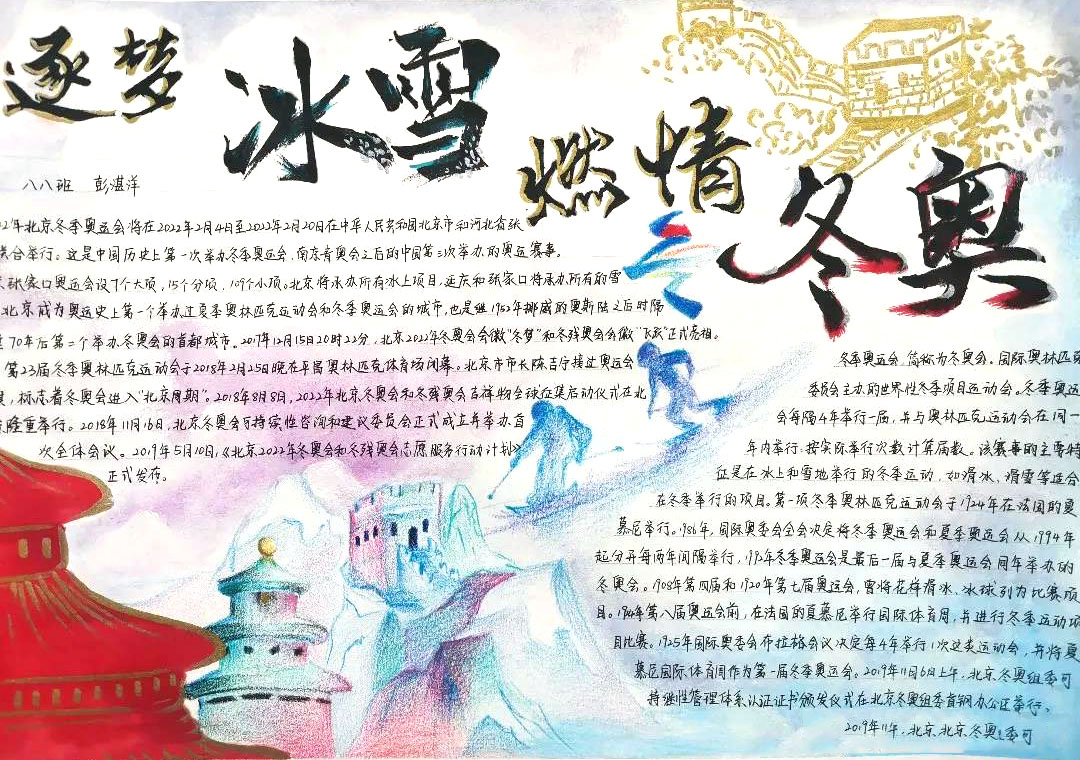 逐梦 冰雪
燃情 冬奥
八八班 彭湛洋
年北京冬季奥运会将在2022年2月4日至2022年2月20日在中华人民共和国北京市和河北省张
合举行。这是中国历史上第一次举办冬季奥运会,南京青奥会之后的中国第三次举办的奥运赛事。
张家口奥运会设7个大项,15个分项,109个小项。北京将承办所有冰上项目,延庆和张家口将承办所有的雪
北京成为奥运史上第一个举办过夏季奥林匹克运动会和冬季奥运会的城市,也是继1952年挪威的奥斯陆之后时隔
70年后第二个举办冬奥会的首都城市。2017年12月15日20时22分,北京2022年冬奥会会徽"冬梦"和冬残奥会会徽"飞跃"正式亮相。
第23届冬季奥林匹克运动会于2018年2月25日晚在平昌奥林匹克体育场闭幕。北京市市长陈吉宁接过奥运会
,标志着冬奥会进入"北京周期"。2018年8月8日,2022年北京冬奥会和冬残奥会吉祥物全球征集启动仪式在北
隆重举行。2018年11月16日,北京冬奥会可持续性咨询和建议委员会正式成立并举办首
次全体会议。2019年5月10日,《北京2022年冬奥会和冬残奥会志愿服务行动计划》
正式发布。
冬季奥运会,简称为冬奥会。国际奥林匹
委员会主办的世界性冬季项目运动会。冬季奥运
会每隔4年举行一届,并与奥林匹克运动会在同一
年内举行,按实际举行次数计算届数。该赛事的主要特
征是在冰上和雪地举行的冬季运动,如滑冰、滑雪等适合
在冬季举行的项目。第一项冬季奥林匹克运动会于1924年在法国的夏
慕尼举行。1986年,国际奥委会全会决定将冬季奥运会和夏季奥运会从1994年
起分开每两年间隔举行,1992年冬季奥运会是最后一届与夏季奥运会同年举办的
冬奥会。1908年第四届和1920年第七届奥运会,曾将花样滑冰、冰球列为比赛项
目。1924年第八届奥运会前,在法国的夏慕尼举行国际体育周,并进行冬季运动项
目比赛。1925年国际奥委会布拉格会议决定每4年举行1次这类运动会,并将夏
慕尼国际体育周作为第一届冬季奥运会。2019年11月6日上午,北京冬奥组委可
持续性管理体系认证证书颁发仪式在北京冬奥组委首钢办公区举行。
2019年11年,北京,北京冬奥组委可